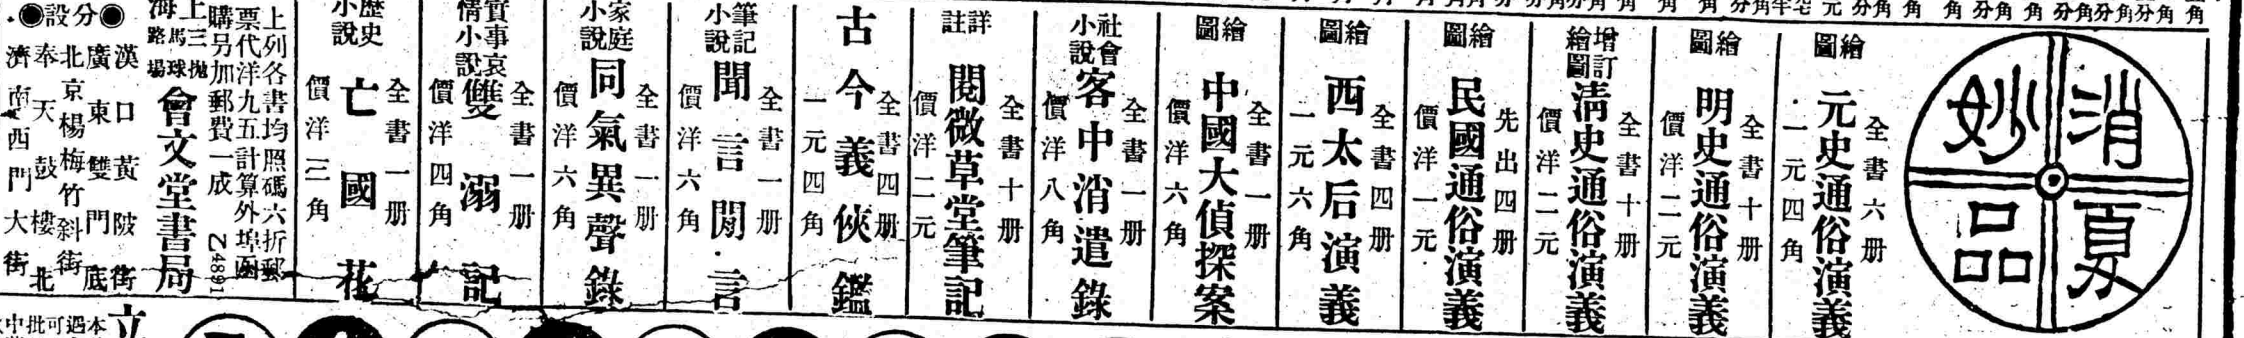 消夏
妙品
繪圖
元史通俗演義
全書六册
一元四角
繪圖
明史通俗演義
全書十册
價洋二元
增訂
繪圖
清史通俗演義
全書十册
價洋二元
繪圖
民國通俗演義
先出四册
價洋一元
繪圖
西太后演義
全書四册
一元六角
繪圖
中國大偵探案
全書一册
價洋六角
社會
小說
客中消遣錄
全書一册
價洋八角
詳註
閱微草堂筆記
全書十册
價洋二元
古今義俠鑑
全書四册
一元四角
筆記
小說
聞言閒言
全書一册
價洋六角
家庭
小說
同氣異聲錄
全書一册
價洋六角
實事哀
情小說
雙溺記
全書一册
價洋四角
歷史
小說
亡國花
全書一册
價洋三角
上列各書均照碼六折郵
票代洋九五計算外埠函
購另加郵費一成
Z4891
上海
三馬路
拋球場
會文堂書局
●分設●
漢口黃陂街
廣東雙門底
北京楊梅竹斜街
奉天鼓樓北
濟南西門大街